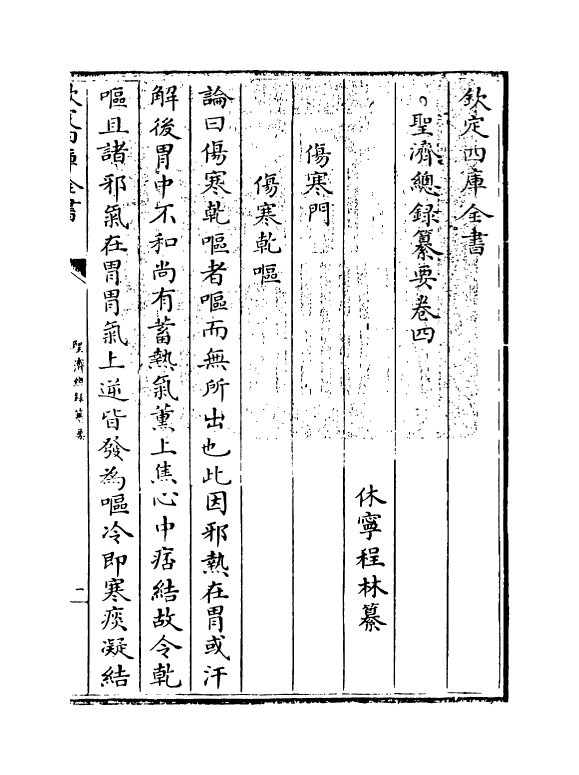 欽定四庫全書
聖濟總錄纂要卷四
休寧程林纂
傷寒門
傷寒乾嘔
論曰傷寒乾嘔者嘔而無所出也此因邪熱在胃或汗
解後胃中不和尚有蓄熱氣薰上焦心中痞結故令乾
嘔且諸邪氣在胃胃氣上逆皆發為嘔冷即寒痰凝結
欽定四庫全書
聖濟總錄纂要